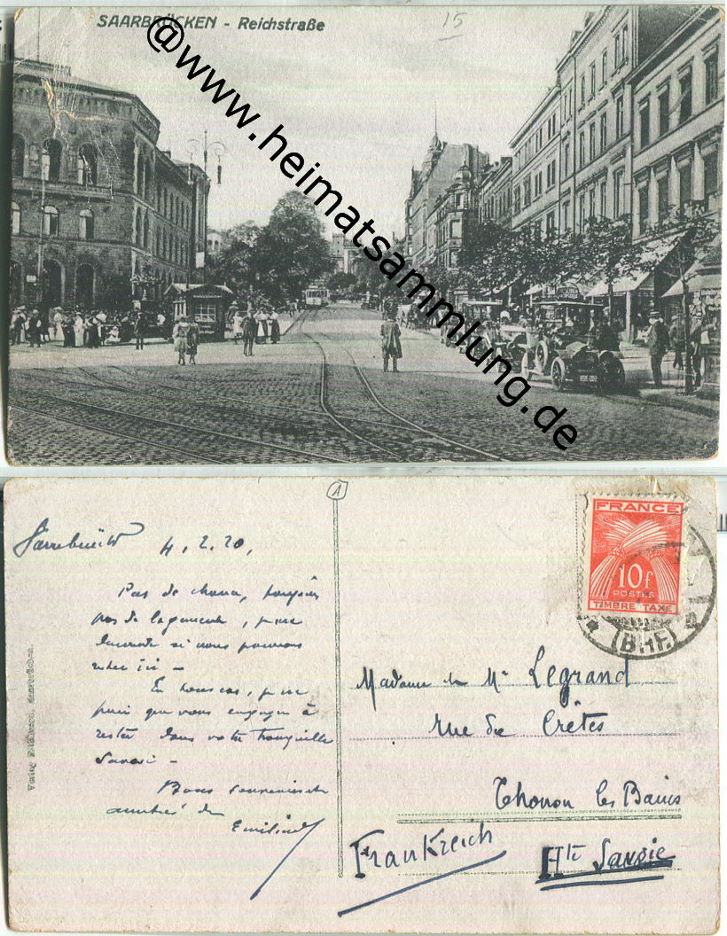 SAARBRÜCKEN - Reichstraße
15
@www.heimatsammlung.de
A
Sarrebrück 4.2.20,
Pas de chance, toujours
pas de logement, je me
demande si nous pourrons
rester ici -
En tous cas, je ne
puis que vous engager à
rester dans votre tranquille
Savoie -
Bons souvenirs et
amitiés de
FRANCE
10f
POSTES
TIMBRE TAXE
(BHF.)
Madame de Legrand
rue de Crêtes
Thonon les Bains
Hte Savoie
Frankreich